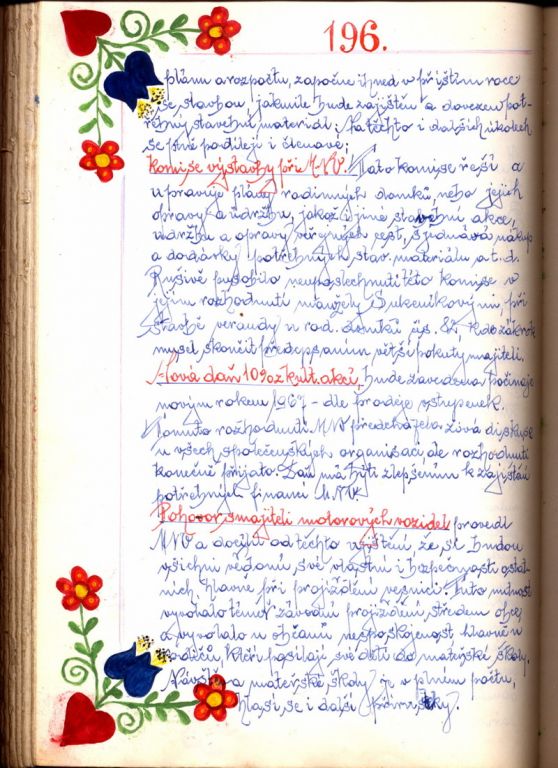 196.
plánu a rozpočtu, započne ihned v příštím roce
se stavbou, jakmile bude zajištěn a dovezen pot-
řebný stavební materiál. Na těchto i dalších úkolech
se plně podílejí i členové;
Komise výstavby při MNV. Tato komise řeší a
upravuje plány rodinných domků, nebo jejich
opravy a údržbu, jakož i jiné stavební akce,
údržbu a opravy veřejných cest, sjednává nákup
a dodávky potřebných stav. materiálu a.t.d.
Rušivě působilo neuposlechnutí této komise v
jejím rozhodnutí manžely Sukeníkovými, při
stavbě verandy u rod. domků čís. 8, kde zákrok
musel skončit předepsáním větší pokuty majiteli.
Nová daň 10% z kult. akcí, bude zavedena počínaje
novým rokem 1967 - dle prodeje vstupenek.
Tomuto rozhodnutí MNV předcházela živá diskuse
u všech společenských organisací, ale rozhodnutí
konečně přijato. Daň má býti zlepšením k zajištění
potřebných financí MNV.
Pohovor s majiteli motorových vozidel provedl
MNV a docílil od těchto ujištění, že si budou
všichni vědomi své vlastní i bezpečnosti ostat-
ních, hlavně při projíždění vesnicí. Tuto nutnost
vyvolalo téměř závodní projíždění středem obce
a vyvolalo u občanů nespokojenost hlavně u
rodičů, kteří posílají své děti do mateřské školy.
Návštěva mateřské školy je v plném počtu,
hlásí se i další